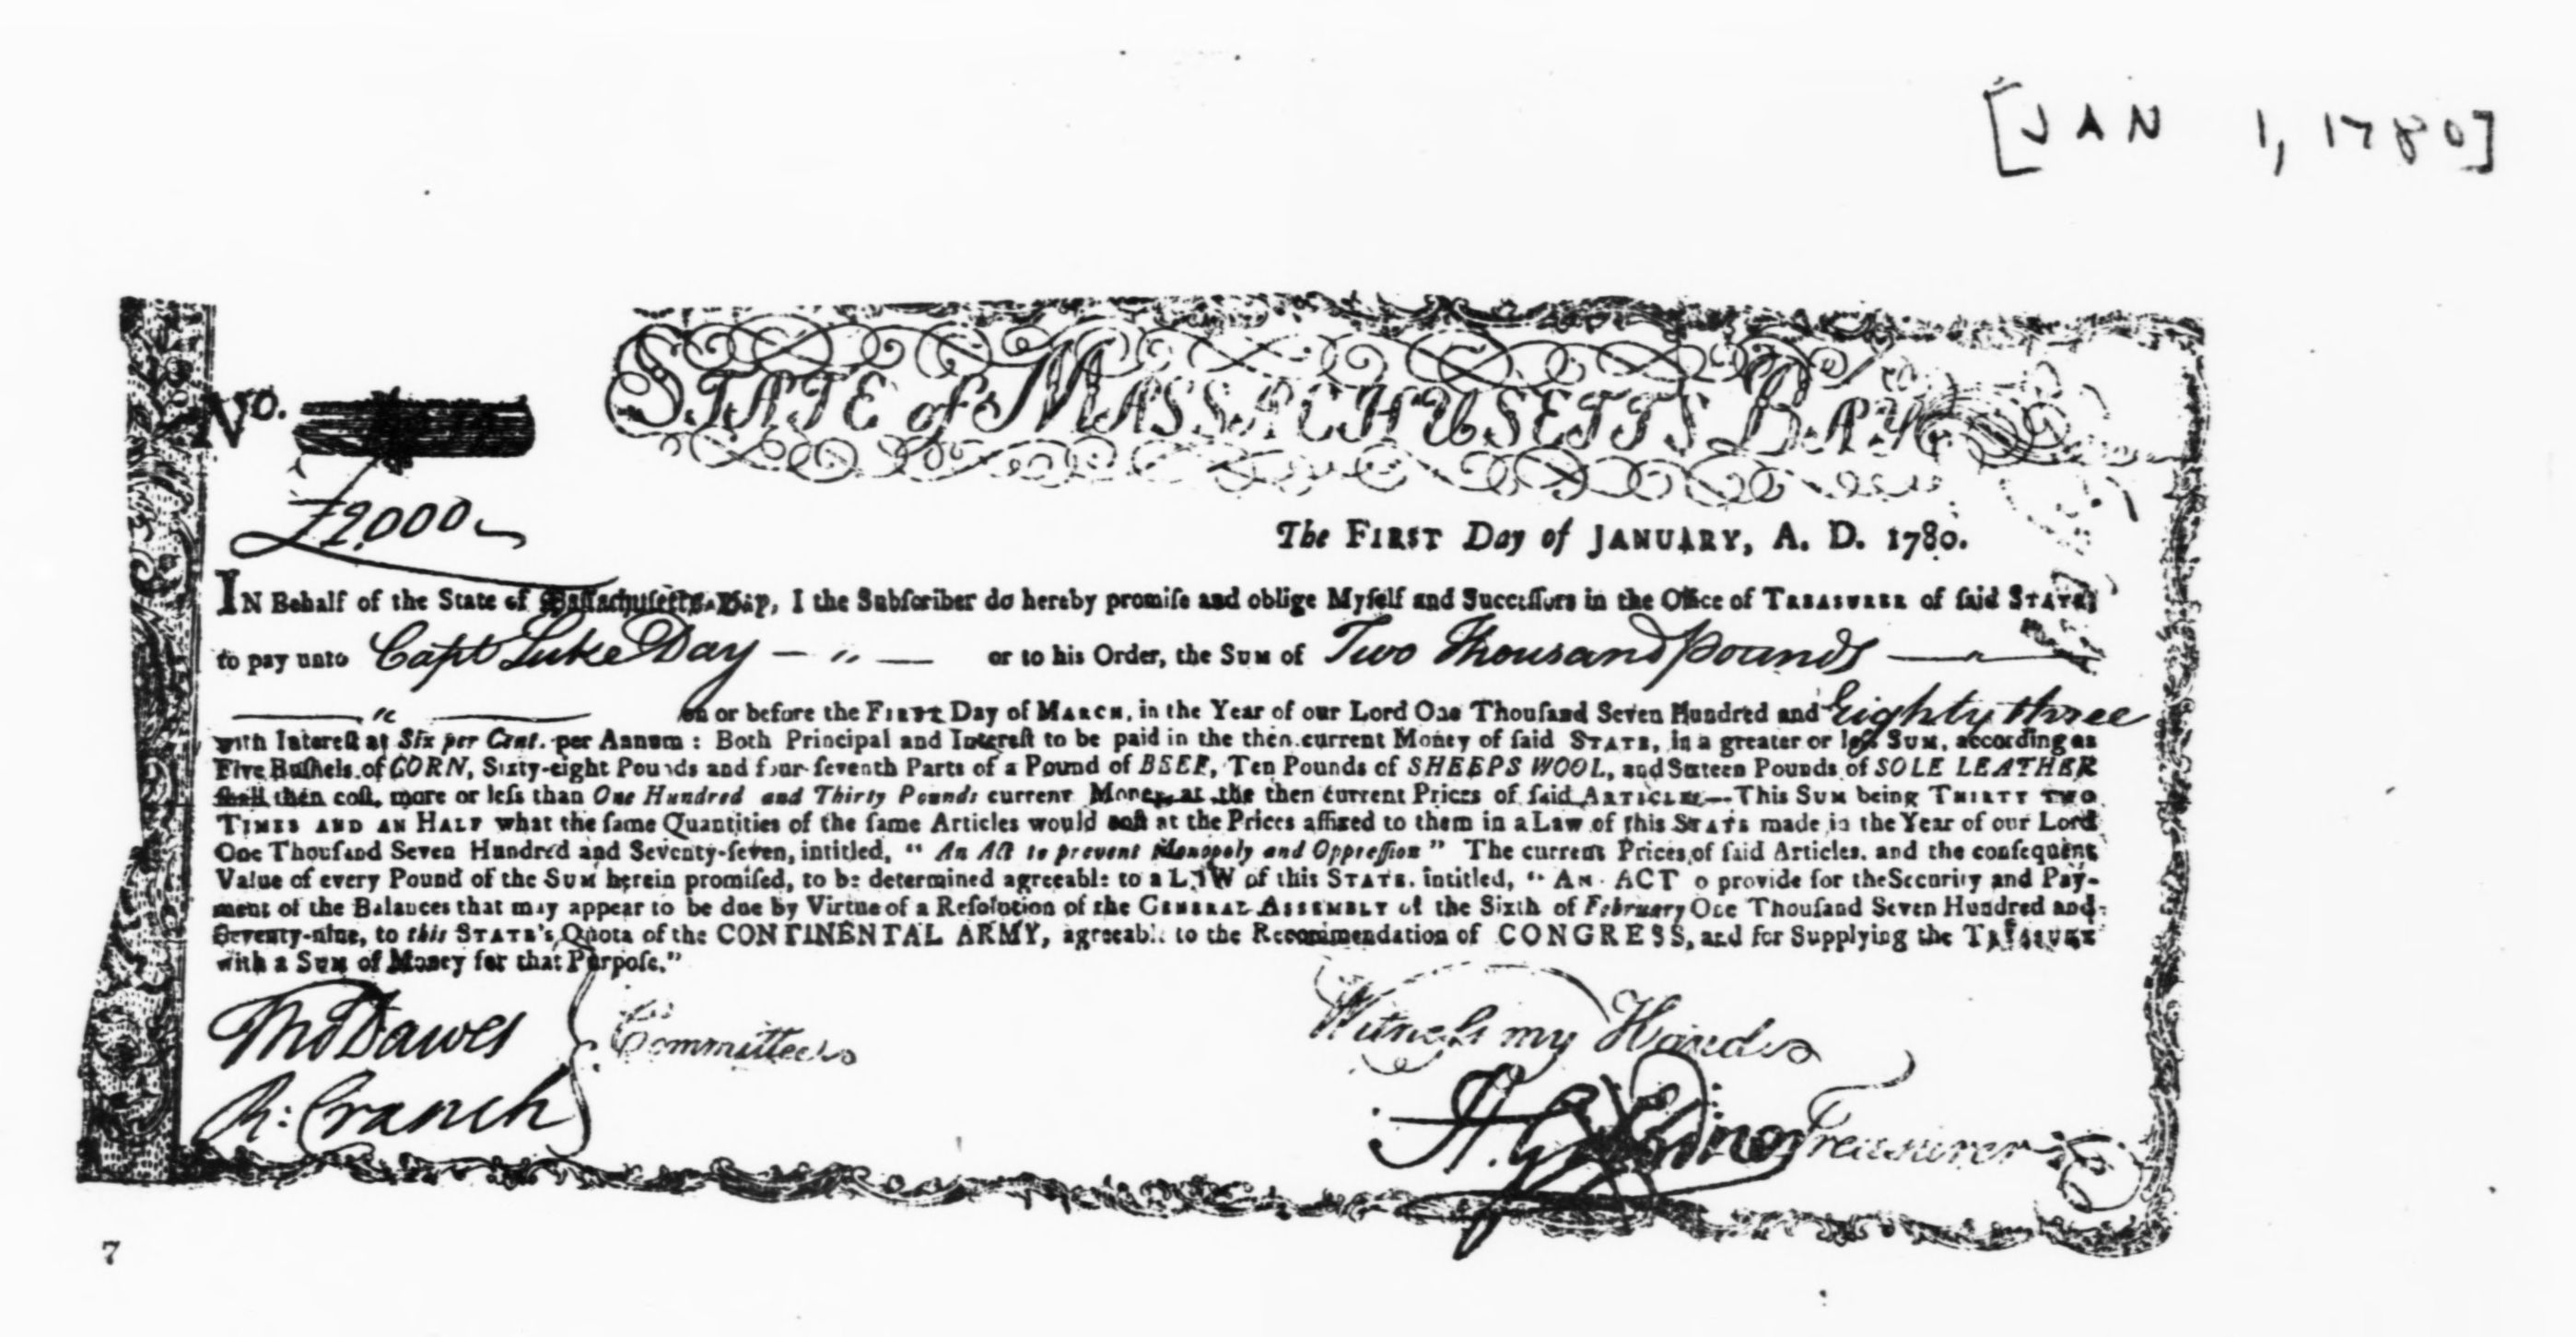 [JAN 1, 1780]
STATE of MASSACHUSETTS BAY.
No.
£2,000
The FIRST Day of JANUARY, A. D. 1780.
IN Behalf of the State of Massachusetts-Bay, I the Subſcriber do hereby promiſe and oblige Myſelf and Succeſſors in the Office of TREASURER of ſaid STATE,
to pay unto Capt Luke Day — " — or to his Order, the SUM of Two Thousand pounds
on or before the FIRST Day of MARCH, in the Year of our Lord One Thouſand Seven Hundred and Eighty three
with Intereſt at Six per Cent. per Annum : Both Principal and Intereſt to be paid in the then current Money of ſaid STATE, in a greater or leſs SUM, according as
Five Buſhels of CORN, Sixty-eight Pounds and four-ſeventh Parts of a Pound of BEEF, Ten Pounds of SHEEPS WOOL, and Sixteen Pounds of SOLE LEATHER
ſhall then coſt, more or leſs than One Hundred and Thirty Pounds current Money, at the then current Prices of ſaid ARTICLES—This SUM being THIRTY TWO
TIMES AND AN HALF what the ſame Quantities of the ſame Articles would coſt at the Prices affixed to them in a Law of this STATE made in the Year of our Lord
One Thouſand Seven Hundred and Seventy-ſeven, intitled, "An Act to prevent Monopoly and Oppreſſion" The current Prices of ſaid Articles, and the conſequent
Value of every Pound of the SUM herein promiſed, to be determined agreeable to a LAW of this STATE, intitled, "AN ACT o provide for the Security and Pay-
ment of the Balances that may appear to be due by Virtue of a Reſolution of the GENERAL ASSEMBLY of the Sixth of February One Thouſand Seven Hundred and
Seventy-nine, to this STATE's Quota of the CONTINENTAL ARMY, agreeable to the Recommendation of CONGRESS, and for Supplying the TREASURY
with a SUM of Money for that Purpoſe."
Tho Dawes
Committee
Witneſs my Hand
R: Cranch
H. Gardner Treasurer
7